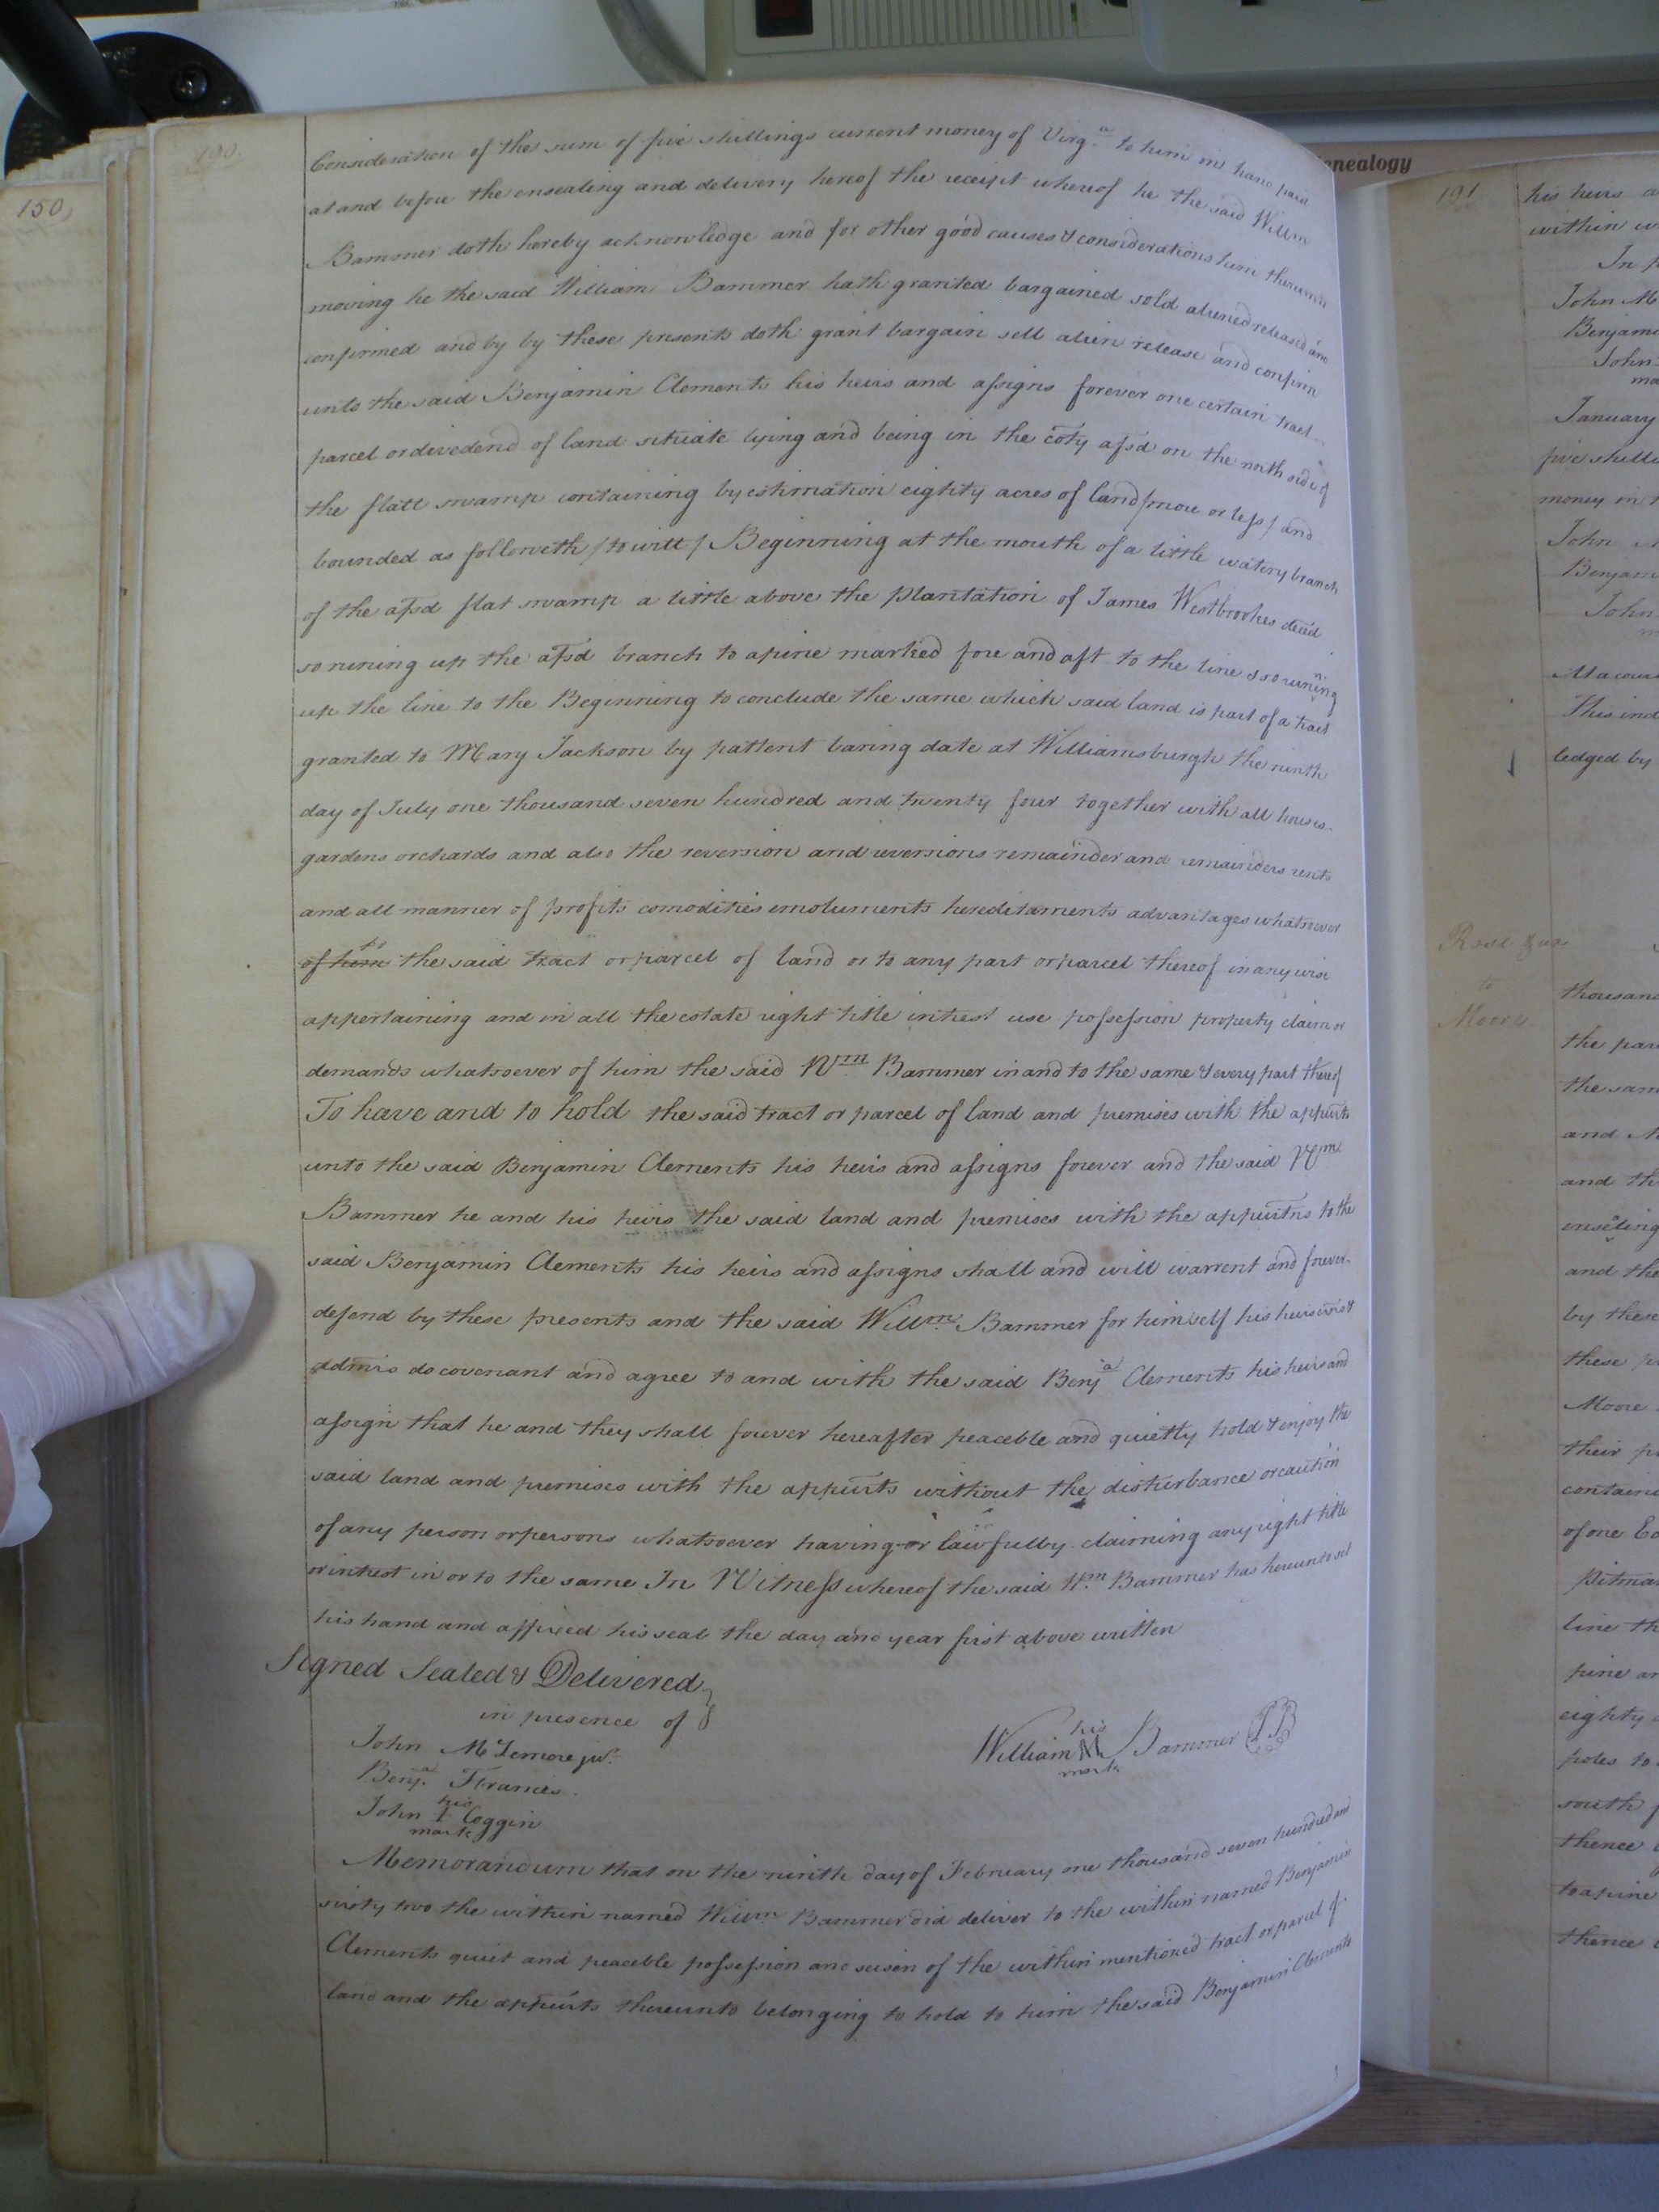 190.
Consideration of the sum of five shillings current money of Virg.a to him in hand paid
at and before the ensealing and delivery hereof the receipt whereof he the said Willm
Bammer doth hereby acknowledge and for other good causes & considerations him thereunto
moving he the said William Bammer hath granted bargained sold aliened released and
confirmed and by by these presents doth grant bargain sell alien release and confirm
unto the said Benjamin Clements his heirs and assigns forever one certain tract
parcel or divedend of land situate lying and being in the coty afsd on the north side of
the flatt swamp containing by estimation eighty acres of land /more or less/ and
bounded as followeth /to witt/ Beginning at the mouth of a little watery branch
of the afsd flat swamp a little above the plantation of James Westbrookes decd
so runing up the afsd branch to a pine marked fore and aft to the line & so runing
up the line to the Beginning to conclude the same which said land is part of a tract
granted to Mary Jackson by pattent baring date at Williamsburgh the ninth
day of July one thousand seven hundred and twenty four together with all houses
gardens orchards and also the reversion and reversions remainder and remainders rents
and all manner of profits comodities emoluments hereditaments advantages whatsoever
of him to the said tract or parcel of land or to any part or parcel thereof in any wise
appertaining and in all the estate right title intrest use possession property claim or
demands whatsoever of him the said Wm Bammer in and to the same & every part thereof
To have and to hold the said tract or parcel of land and premises with the appurts
unto the said Benjamin Clements his heirs and assigns forever and the said Wm
Bammer he and his heirs the said land and premises with the appurtns to the
said Benjamin Clements his heirs and assigns shall and will warrent and forever
defend by these presents and the said Willm Bammer for himself his heirs exrs &
admrs do covenant and agree to and with the said Benja Clements his heirs and
assign that he and they shall forever hereafter peaceble and quietly hold & enjoy the
said land and premises with the appurts without the disturbance or caution
of any person or persons whatsoever having or lawfully claiming any right title
or intrest in or to the same In Witness whereof the said Wm Bammer has hereunto set
his hand and affixed his seal the day and year first above written
Signed Sealed & Delivered
in presence of
John McLemore jur.
Benja. Frances.
his
John I Coggin
mark
his
William M Bammer
mark
Memorandum that on the ninth day of February one thousand seven hundred and
sixty two the within named Willm Bammer did deliver to the within named Benjamin
Clements quiet and peaceble possession and seisen of the within mentioned tract or parcel of
land and the appurts thereunto belonging to hold to him the said Benjamin Clements
150
enealogy
191
his heirs
within
John M
Benjam
John
January
five shill
money in
John
Benjam
John
This ind
ledged by
Rose & ux
to
Moore
thousand
the par
the sam
and
and th
enseling
and the
by these
these
Moore
their
contain
of one
pitman
line th
pine an
eighty
poles to
south
thence
to a pine
thence